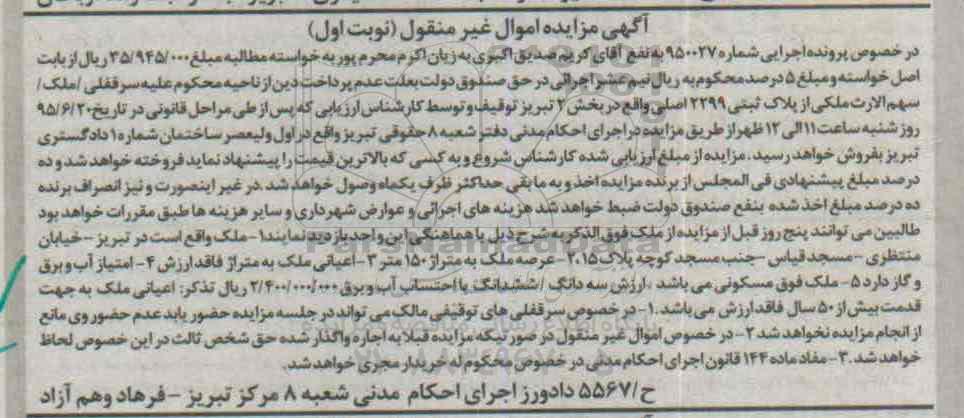 آگهی مزایده اموال غیر منقول (نوبت اول)
در خصوص پرونده اجرایی شماره ۹۵۰۰۲۷ به نفع آقای کریم صدیق اکبری به زیان اکرم محرم پور به خواسته مطالبه مبلغ ۳۵/۹۴۵/۰۰۰ ریال از بابت
اصل خواسته و مبلغ ۵ درصد محکوم به ریال نیم عشر اجرائی در حق صندوق دولت بعلت عدم پرداخت دین از ناحیه محکوم علیه سرقفلی /ملک/
سهم الارث ملکی از پلاک ثبتی ۲۲۹۹ اصلی واقع در بخش ۲ تبریز توقیف و توسط کارشناس ارزیابی که پس از طی مراحل قانونی در تاریخ ۹۵/۶/۲۰
روز شنبه ساعت ۱۱ الی ۱۲ ظهر از طریق مزایده در اجرای احکام مدنی دفتر شعبه ۸ حقوقی تبریز واقع در اول ولیعصر ساختمان شماره ۱ دادگستری
تبریز بفروش خواهد رسید. مزایده از مبلغ ارزیابی شده کارشناس شروع و به کسی که بالاترین قیمت را پیشنهاد نماید فروخته خواهد شد و ده
درصد مبلغ پیشنهادی فی المجلس از برنده مزایده اخذ و به مابقی حداکثر ظرف یکماه وصول خواهد شد. در غیر اینصورت و نیز انصراف برنده
ده درصد مبلغ اخذ شده بنفع صندوق دولت ضبط خواهد شد هزینه های اجرائی و عوارض شهرداری و سایر هزینه ها طبق مقررات خواهد بود
طالبین می توانند پنج روز قبل از مزایده از ملک فوق الذکر به شرح ذیل با هماهنگی این واحد بازدید نمایند ۱- ملک واقع است در تبریز - خیابان
منتظری - مسجد قیاس - جنب مسجد کوچه پلاک ۲،۱۵- عرصه ملک به متراژ ۱۵۰ متر ۳- اعیانی ملک به متراژ فاقد ارزش ۴- امتیاز آب و برق
و گاز دارد ۵- ملک فوق مسکونی می باشد . ارزش سه دانگ /ششدانگ با احتساب آب و برق ۲/۴۰۰/۰۰۰/۰۰۰ ریال تذکر: اعیانی ملک به جهت
قدمت بیش از ۵۰ سال فاقد ارزش می باشد. ۱- در خصوص سرقفلی های توقیفی مالک می تواند در جلسه مزایده حضور یابد عدم حضور وی مانع
از انجام مزایده نخواهد شد ۲- در خصوص اموال غیر منقول در صورتیکه مزایده قبلا به اجاره واگذار شده حق شخص ثالث در این خصوص لحاظ
خواهد شد. ۳- مفاد ماده ۱۴۴ قانون اجرای احکام مدنی در خصوص محکوم له خریدار مجری خواهد شد.
ح/۵۵۶۷ دادورز اجرای احکام مدنی شعبه ۸ مرکز تبریز - فرهاد وهم آزاد
ParsNamadData